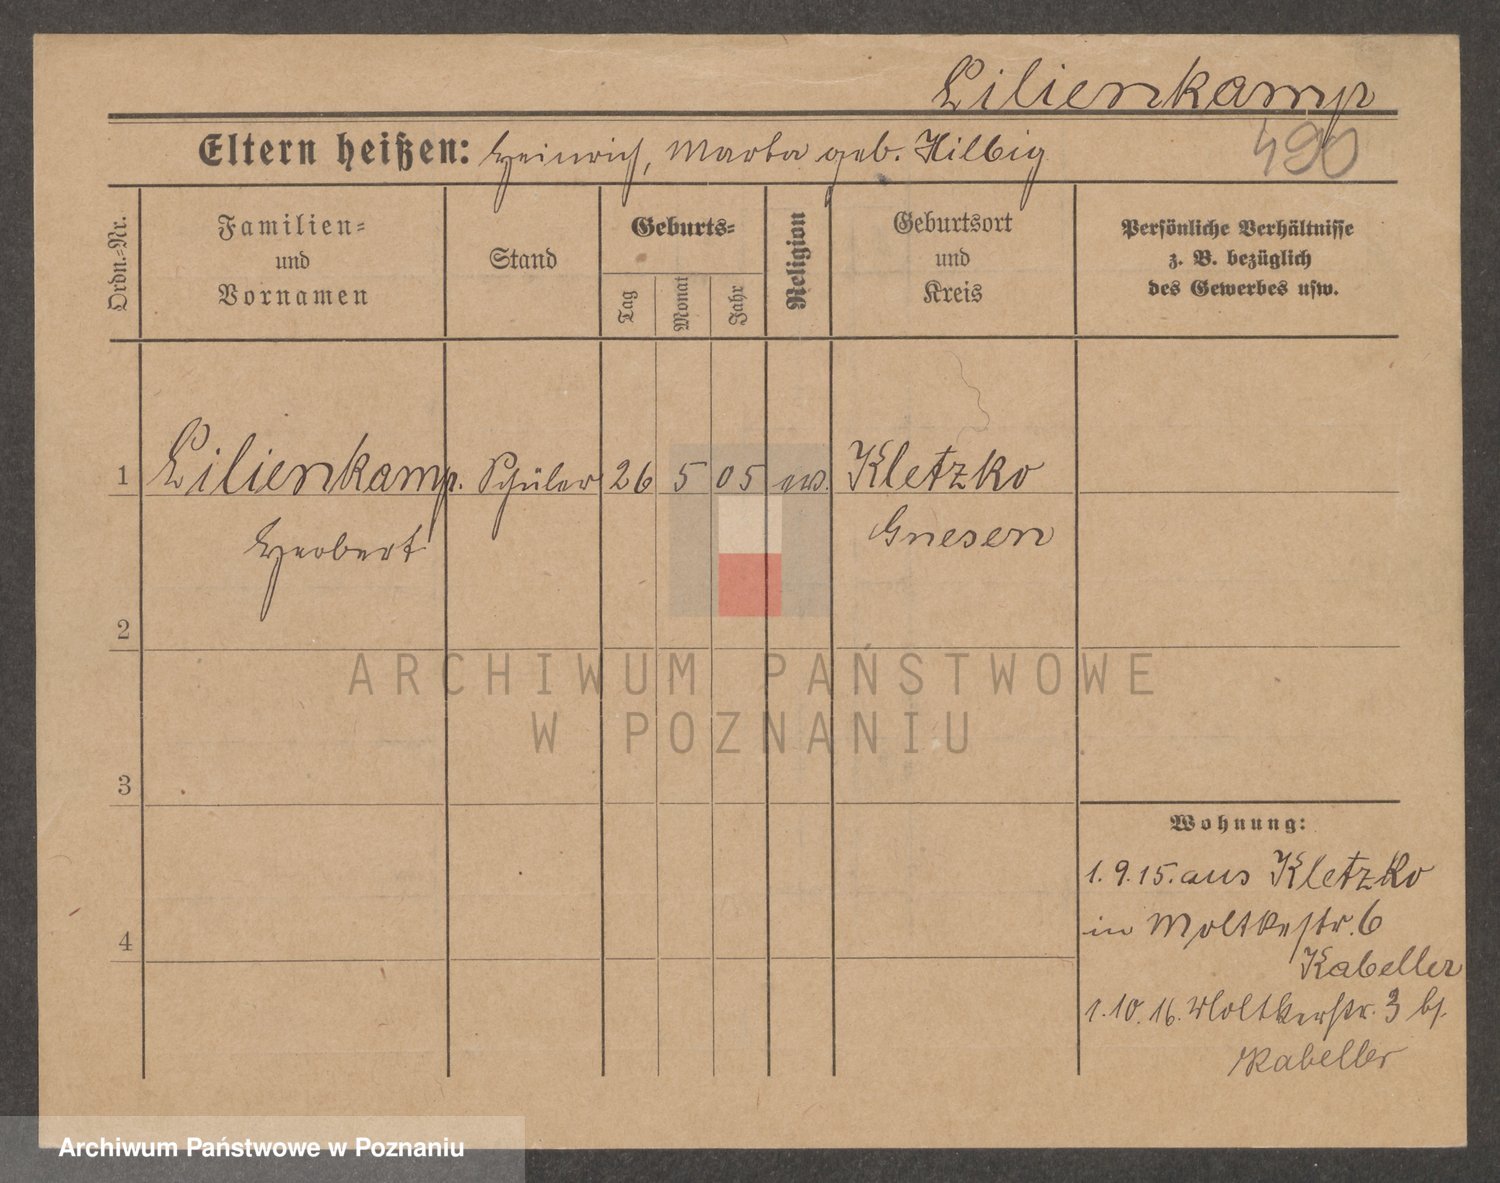 Lilienkamp
490
Eltern heißen: Heinrich, Marta geb. Hilbig
Ordn.-Nr.
Familien-
und
Vornamen
Stand
Geburts-
Tag
Monat
Jahr
Religion
Geburtsort
und
Kreis
Persönliche Verhältnisse
z. B. bezüglich
des Gewerbes usw.
1 Lilienkamp. Schüler 26 5 05 ev. Kletzko
Herbert Gnesen
2
ARCHIWUM PAŃSTWOWE
W POZNANIU
3
Wohnung:
1.9.15. aus Kletzko
4 in Moltkestr. 6
Kabeller
1.10.16. Moltkestr. 3 bf.
Kabeller
Archiwum Państwowe w Poznaniu